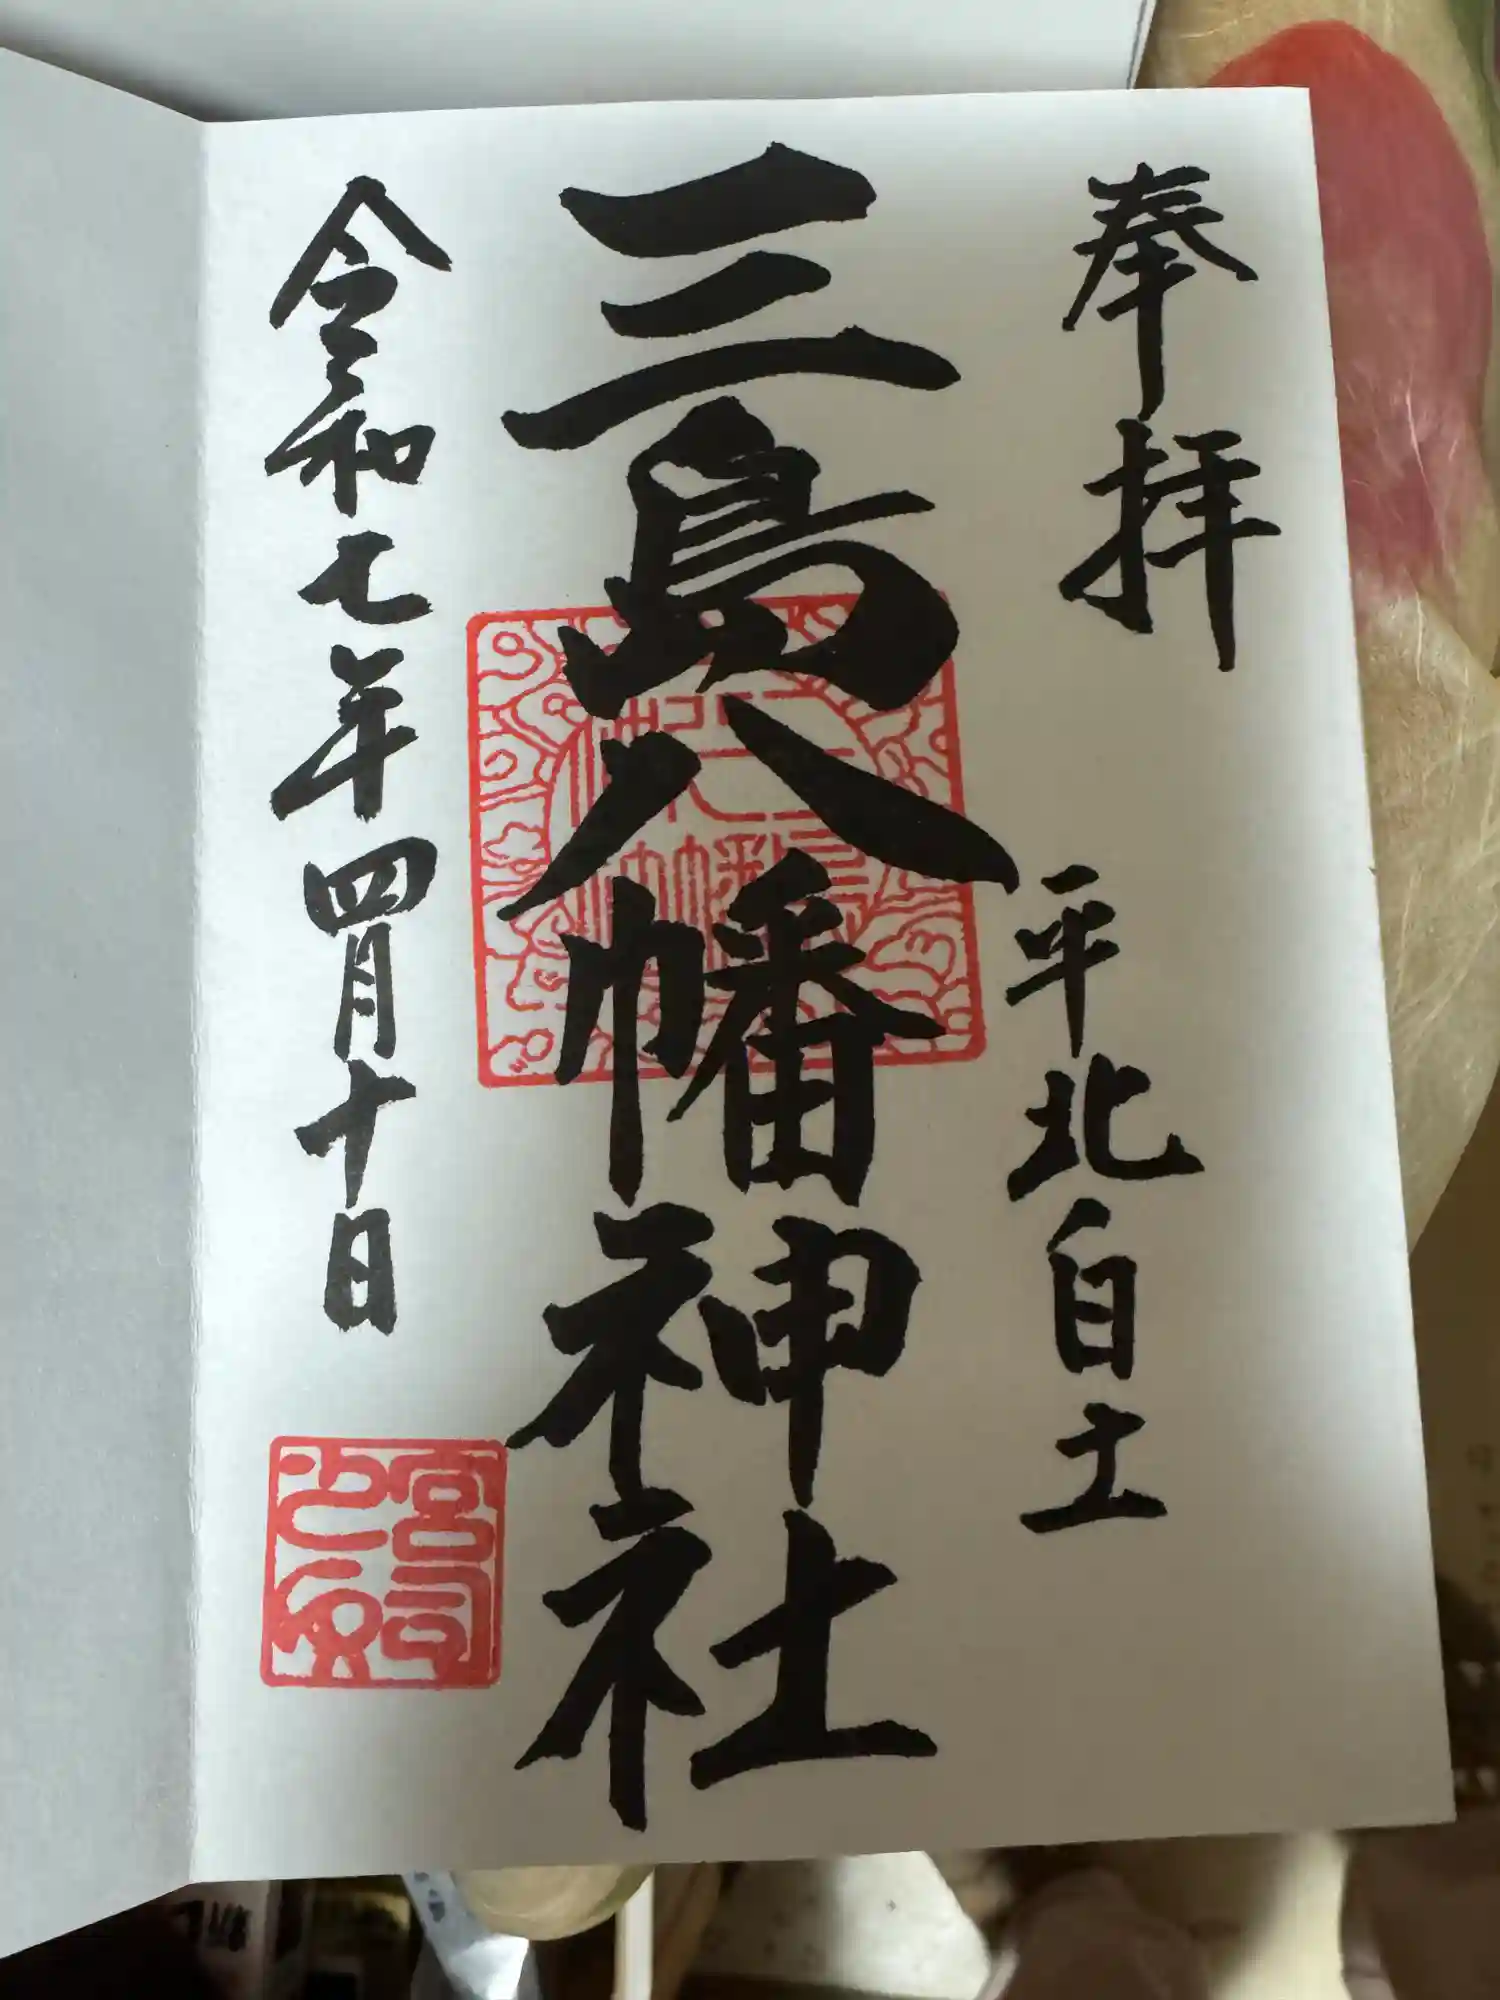 奉拝
平北白土
三島八幡神社
令和七年四月十日
宮司之印